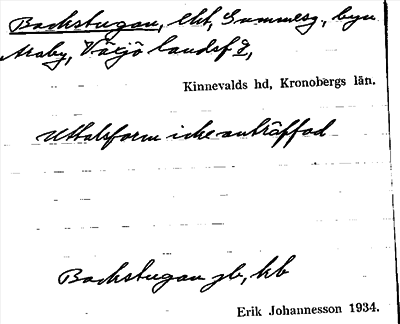 Backstugan, lht, Sammeseg., byn
Araby, Växjö landsf g,
Kinnevalds hd, Kronobergs län.
Uttalsform icke anträffad
Backstugan jb, kb
Erik Johannesson 1934.